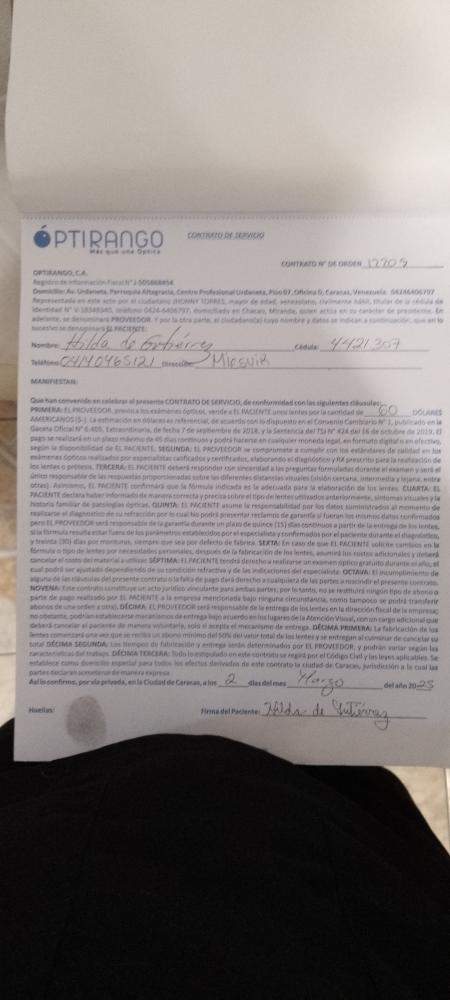 ÓPTIRANGO
Más que una Óptica
CONTRATO DE SERVICIO
CONTRATO N° DE ORDEN 12209
OPTIRANGO, C.A.
Registro de Información Fiscal N° J-505868454
Domicilio: Av. Urdaneta, Parroquia Altagracia, Centro Profesional Urdaneta, Piso 07, Oficina D, Caracas, Venezuela. 04246406797
Representada en este acto por el ciudadano JHONNY TORRES, mayor de edad, venezolano, civilmente hábil, titular de la cédula de
identidad N° V-18348340, teléfono 0424-6406797, domiciliado en Chacao, Miranda, quien actúa en su carácter de presidente. En
adelante, se denominará PROVEEDOR. Y por la otra parte, el ciudadano(a) cuyo nombre y datos se indican a continuación, que en lo
sucesivo se denominará EL PACIENTE:
Nombre: Hilda de Gutiérrez Cédula: 4421307
Teléfono: 04140465121 Dirección:
MANIFIESTAN:
Que han convenido en celebrar el presente CONTRATO DE SERVICIO, de conformidad con las siguientes cláusulas:
PRIMERA: EL PROVEEDOR, previo a los exámenes ópticos, vende a EL PACIENTE unos lentes por la cantidad de 60 DÓLARES
AMERICANOS ($-). La estimación en dólares es referencial, de acuerdo con lo dispuesto en el Convenio Cambiario N° 1, publicado en la
Gaceta Oficial N° 6.405, Extraordinario, de fecha 7 de septiembre de 2018, y la Sentencia del TSJ N° 424 del 16 de octubre de 2019. El
pago se realizará en un plazo máximo de 45 días continuos y podrá hacerse en cualquier moneda legal, en formato digital o en efectivo,
según la disponibilidad de EL PACIENTE. SEGUNDA: EL PROVEEDOR se compromete a cumplir con los estándares de calidad en los
exámenes ópticos realizados por especialistas calificados y certificados, elaborando el diagnóstico y RX prescrito para la realización de
los lentes o prótesis. TERCERA: EL PACIENTE deberá responder con sinceridad a las preguntas formuladas durante el examen y será el
único responsable de las respuestas proporcionadas sobre las diferentes distancias visuales (visión cercana, intermedia y lejana, entre
otras). Asimismo, EL PACIENTE confirmará que la fórmula indicada es la adecuada para la elaboración de los lentes. CUARTA: EL
PACIENTE declara haber informado de manera correcta y precisa sobre el tipo de lentes utilizados anteriormente, síntomas visuales y la
historia familiar de patologías ópticas. QUINTA: EL PACIENTE asume la responsabilidad por los datos suministrados al momento de
realizarse el diagnóstico de su refracción por lo cual No podrá presentar reclamos de garantía si fueran los mismos datos confirmados
pero EL PROVEEDOR será responsable de la garantía durante un plazo de quince (15) días continuos a partir de la entrega de los lentes,
si la fórmula resulta estar fuera de los parámetros establecidos por el especialista y confirmados por el paciente durante el diagnóstico,
y treinta (30) días por monturas, siempre que sea por defecto de fábrica. SEXTA: En caso de que EL PACIENTE solicite cambios en la
fórmula o tipo de lentes por necesidades personales, después de la fabricación de los lentes, asumirá los costos adicionales y deberá
cancelar el costo del material a utilizar. SÉPTIMA: EL PACIENTE tendrá derecho a realizarse un examen óptico gratuito durante el año, el
cual podrá ser ajustado dependiendo de su condición refractiva y de las indicaciones del especialista. OCTAVA: El incumplimiento de
alguna de las cláusulas del presente contrato o la falta de pago dará derecho a cualquiera de las partes a rescindir el presente contrato.
NOVENA: Este contrato constituye un acto jurídico vinculante para ambas partes; por lo tanto, no se restituirá ningún tipo de abono o
parte de pago realizado por EL PACIENTE a la empresa mencionada bajo ninguna circunstancia, como tampoco se podrá transferir
abonos de una orden a otra). DÉCIMA: EL PROVEEDOR será responsable de la entrega de los lentes en la dirección fiscal de la empresa;
no obstante, podrían establecerse mecanismos de entrega bajo acuerdo en los lugares de Atención Visual, con un cargo adicional que
deberá cancelar el paciente de manera voluntaria, solo si acepta el mecanismo de entrega. DÉCIMA PRIMERA: La fabricación de los
lentes comenzará una vez que se reciba un abono mínimo del 50% del valor total de los lentes y se entregan al culminar de cancelar su
total DÉCIMA SEGUNDA: Los tiempos de fabricación y entrega serán determinados por EL PROVEEDOR, y podrán variar según las
características del trabajo. DÉCIMA TERCERA: Todo lo estipulado en este contrato se regirá por el Código Civil y las leyes aplicables. Se
establece como domicilio especial para todos los efectos derivados de este contrato la ciudad de Caracas, jurisdicción a la cual las
partes declaran someterse de manera expresa.
Así lo confirmo, por vía privada, en la Ciudad de Caracas, a los 2 días del mes Marzo del año 2025
Huellas: Firma del Paciente: Hilda de Gutiérrez